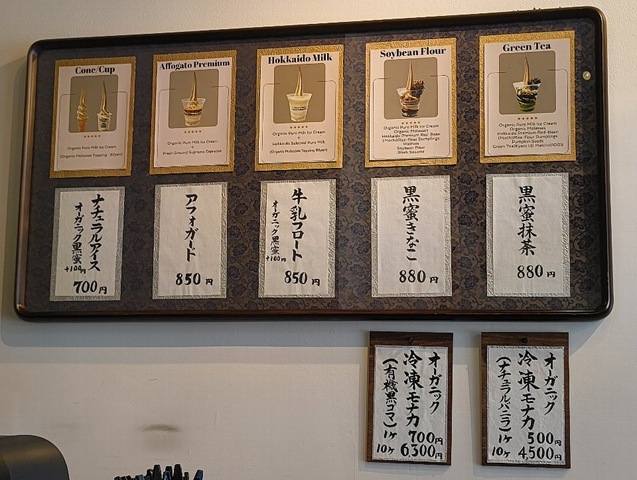 Cone/Cup
★★★★★
Organic Pure Milk Ice Cream
Affogato Premium
★★★★★
Organic Pure Milk Ice Cream
+
Fresh Ground Supremo Espresso
Hokkaido Milk
★★★★★
Organic Pure Milk Ice Cream
+
Hokkaido Selected Pure Milk
Soybean Flour
★★★★★
Organic Pure Milk Ice Cream
Organic Molasses
Hokkaido Premium Red-Bean
Walnuts
Soybean Flour
Black Sesame
Green Tea
★★★★★
Organic Pure Milk Ice Cream
Organic Molasses
Hokkaido Premium Red-Bean
Pumpkin Seeds
ナチュラルアース
オーガニック黒蜜
+100円
700円
アフォガード
850円
牛乳フロート
オーガニック黒蜜
+100円
850円
黒蜜きなこ
880円
黒蜜抹茶
880円
オーガニック
冷凍モナカ
(有機黒ゴマ)
1ヶ 700円
10ヶ 6,300円
オーガニック
冷凍モナカ
(ナチュラルバニラ)
1ヶ 500円
10ヶ 4,500円